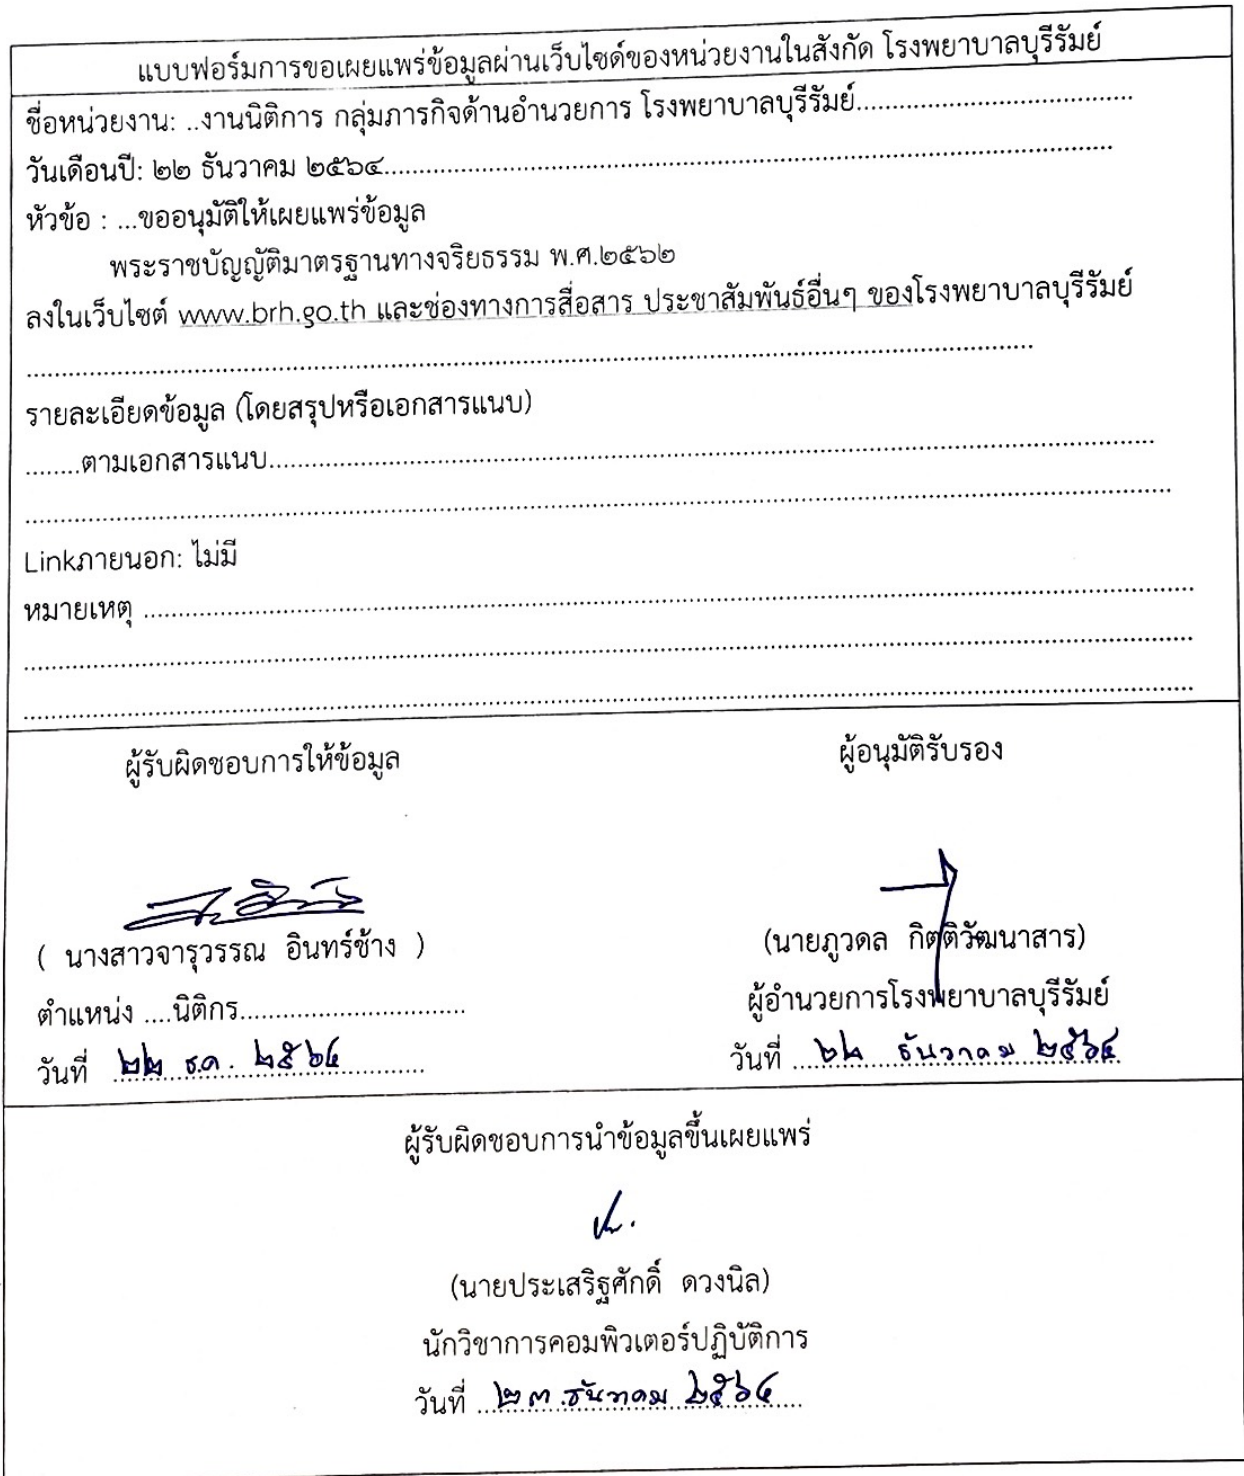 แบบฟอร์มการขอเผยแพร่ข้อมูลผ่านเว็บไซต์ของหน่วยงานในสังกัด โรงพยาบาลบุรีรัมย์
ชื่อหน่วยงาน: ..งานนิติการ กลุ่มภารกิจด้านอำนวยการ โรงพยาบาลบุรีรัมย์........................................
วันเดือนปี: ๒๒ ธันวาคม ๒๕๖๔........................................
หัวข้อ : ...ขออนุมัติให้เผยแพร่ข้อมูล
พระราชบัญญัติมาตรฐานทางจริยธรรม พ.ศ.๒๕๖๒
ลงในเว็บไซต์ www.brh.go.th และช่องทางการสื่อสาร ประชาสัมพันธ์อื่นๆ ของโรงพยาบาลบุรีรัมย์
รายละเอียดข้อมูล (โดยสรุปหรือเอกสารแนบ)
........ตามเอกสารแนบ........................................
Linkภายนอก: ไม่มี
หมายเหตุ ........................................
ผู้รับผิดชอบการให้ข้อมูล
ผู้อนุมัติรับรอง
( นางสาวจารุวรรณ อินทร์ช้าง )
(นายภูวดล กิตติวัฒนาสาร)
ตำแหน่ง ....นิติกร................................
ผู้อำนวยการโรงพยาบาลบุรีรัมย์
วันที่ ๒๒ ธ.ค. ๒๕๖๔
วันที่ ๒๒ ธันวาคม ๒๕๖๔
ผู้รับผิดชอบการนำข้อมูลขึ้นเผยแพร่
(นายประเสริฐศักดิ์ ดวงนิล)
นักวิชาการคอมพิวเตอร์ปฏิบัติการ
วันที่ ๒๓ ธันวาคม ๒๕๖๔